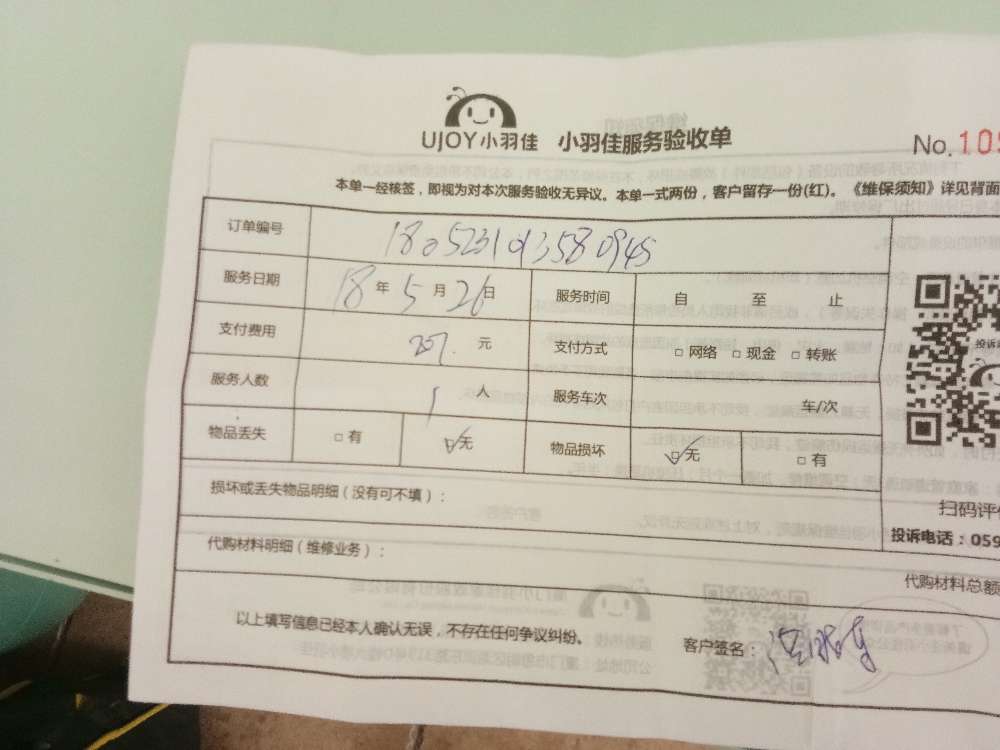 UJOY小羽佳 小羽佳服务验收单
No.105
本单一经核签，即视为对本次服务验收无异议。本单一式两份，客户留存一份(红)。《维保须知》详见背面
订单编号 180523101358094S
服务日期 18 年 5 月 26 日 服务时间 自 至 止
支付费用 207. 元 支付方式 □ 网络 □ 现金 □ 转账
服务人数 1 人 服务车次 车/次
物品丢失 □ 有 □ 无 物品损坏 □ 无 □ 有
投诉
损坏或丢失物品明细（没有可不填）：
扫码评
投诉电话：059
代购材料明细（维修业务）：
代购材料总额
以上填写信息已经本人确认无误，不存在任何争议纠纷。
客户签名：